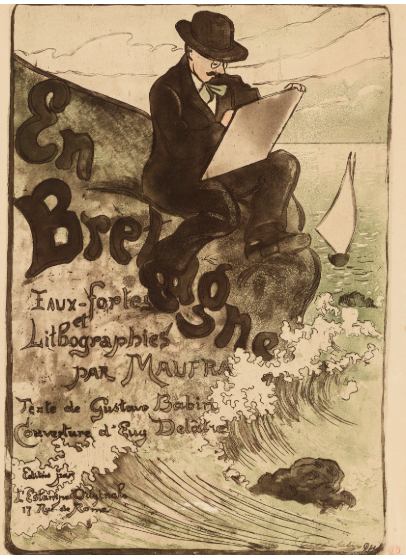 En
Bretagne
Eaux-fortes
et
Lithographies
par MAUFRA
Texte de Gustave Babin
Couverture d'Eug Delâtre
Editée par
L'Estampe Originale
17 Rue de Rome